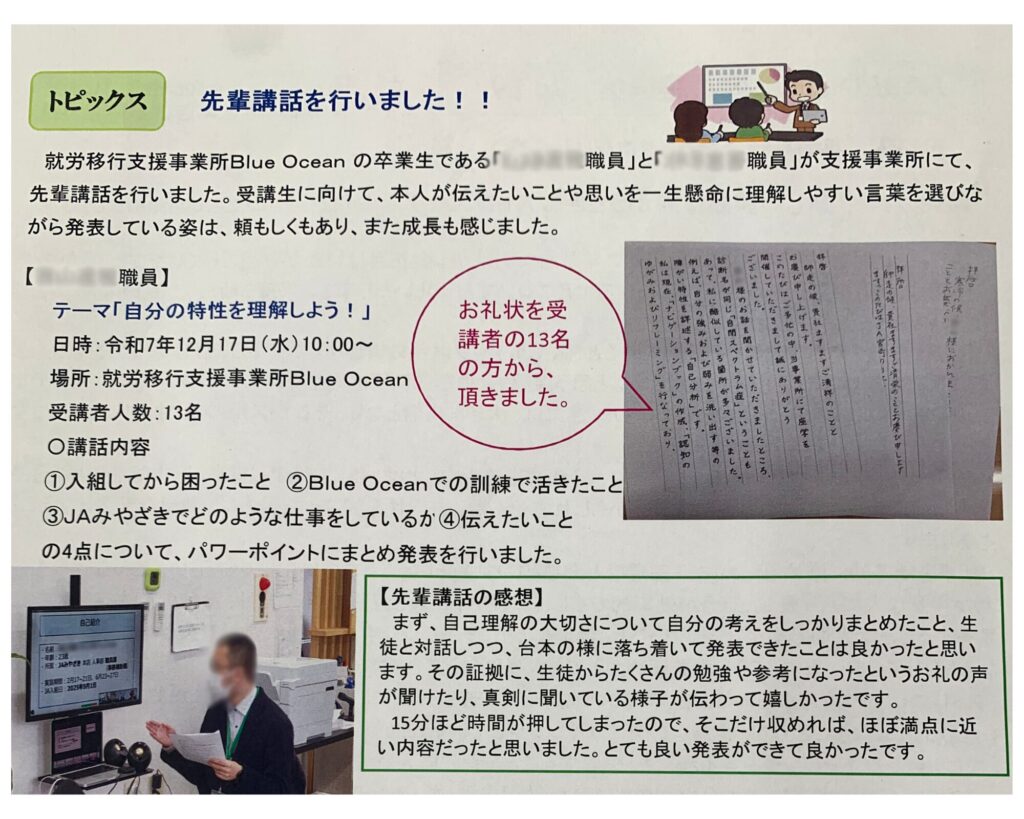 トピックス
先輩講話を行いました！！
就労移行支援事業所Blue Ocean の卒業生である「 職員」と「 職員」が支援事業所にて、
先輩講話を行いました。受講生に向けて、本人が伝えたいことや思いを一生懸命に理解しやすい言葉を選びな
がら発表している姿は、頼もしくもあり、また成長も感じました。
【 職員】
テーマ「自分の特性を理解しよう！」
日時：令和7年12月17日（水）10:00～
場所：就労移行支援事業所Blue Ocean
受講者人数：13名
〇講話内容
①入組してから困ったこと ②Blue Oceanでの訓練で活きたこと
③JAみやざきでどのような仕事をしているか④伝えたいこと
の4点について、パワーポイントにまとめ発表を行いました。
お礼状を受
講者の13名
の方から、
頂きました。
拝啓
師走の候、貴社ますますご清祥のことと
お慶び申し上げます。
このたびはご多忙の中、当事業所にて座学を
開催していただきまして誠にありがとう
ございました。
様のお話を聞かせていただきましたところ、
診断名が同じ「自閉スペクトラム症」ということも
あって、私に酷似している箇所が多々ございました。
例えば、自分の強みおよび弱みを洗い出す等の
障がい特性を詳述する「自己分析」です。
私は現在、「ナビゲーションブック」の作成、「認知の
ゆがみおよびリフレーミング」を行なっており、
自己紹介
・名前
・年齢：23歳
・所属：JAみやざき 本店 人事部
・実習期間：2月17～21日、6月23～27日
・JA入組日：2025年9月1日
【先輩講話の感想】
まず、自己理解の大切さについて自分の考えをしっかりまとめたこと、生
徒と対話しつつ、台本の様に落ち着いて発表できたことは良かったと思い
ます。その証拠に、生徒からたくさんの勉強や参考になったというお礼の声
が聞けたり、真剣に聞いている様子が伝わって嬉しかったです。
15分ほど時間が押してしまったので、そこだけ収めれば、ほぼ満点に近
い内容だったと思いました。とても良い発表ができて良かったです。